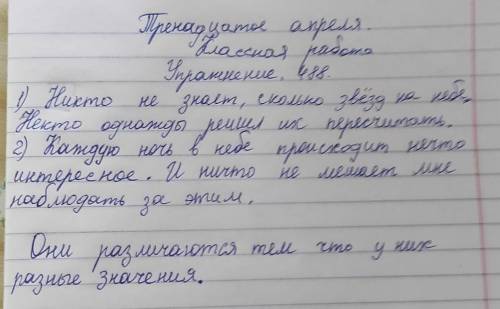 Тренадцатое апреля.
Классная работа
Упражнение. 488.
1) Никто не знает, сколько звёзд на небе.
Некто однажды решил их пересчитать.
2) Каждую ночь в небе происходит нечто
интересное. И ничто не мешает мне
наблюдать за этим.
Они различаются тем что у них
разные значения.